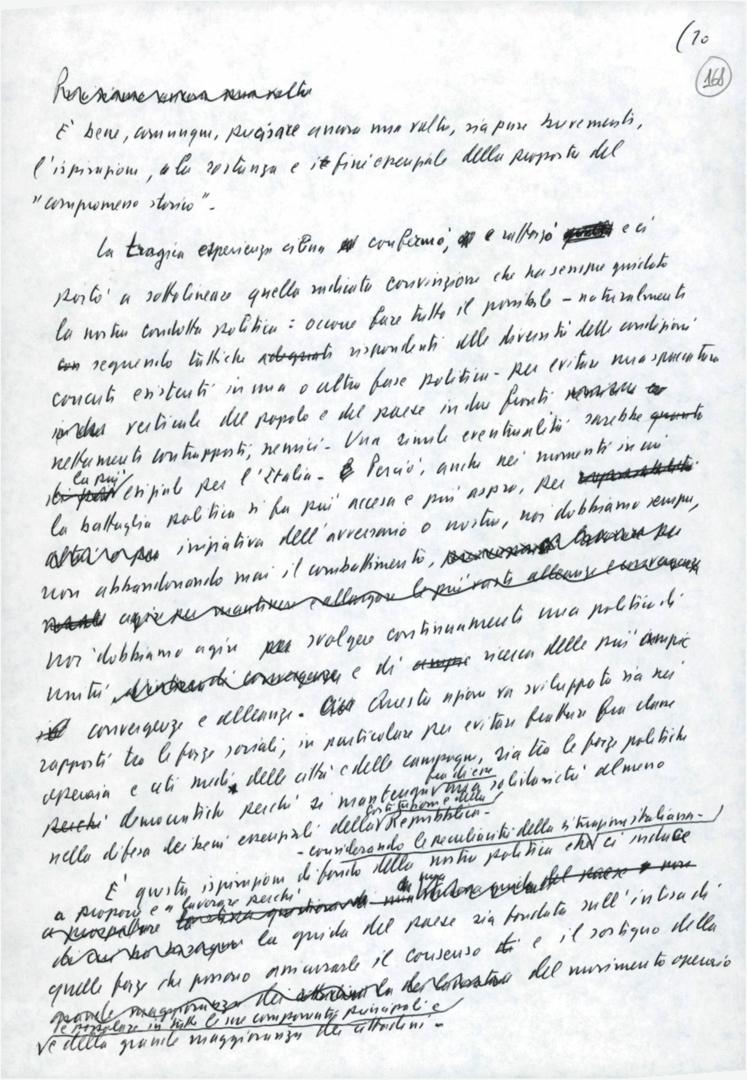 (10
168
È bene, comunque, precisare ancora una volta, sia pure brevemente,
l'ispirazione, la sostanza e i fini essenziali della proposta del
"compromesso storico".
La tragica esperienza cilena confermò, e rafforzò e ci
portò a sottolineare quella radicata convinzione che ha sempre guidato
la nostra condotta politica: occorre fare tutto il possibile - naturalmente
seguendo tattiche rispondenti alle diversità delle condizioni
concrete esistenti in una o altra fase politica - per evitare una spaccatura
verticale del popolo e del paese in due fronti
nettamente contrapposti, nemici. Una simile eventualità sarebbe
la più esiziale per l'Italia. Perciò, anche nei momenti in cui
la battaglia politica si fa più accesa e più aspra, per
iniziativa dell'avversario o nostra, noi dobbiamo sempre,
non abbandonando mai il combattimento,
agire per mantenere e allargare le più vaste alleanze e convergenze
noi dobbiamo agire svolgere continuamente una politica di
unità e di ricerca delle più ampie
convergenze e alleanze. Questa azione va sviluppata sia nei
rapporti tra le forze sociali, in particolare per evitare fratture fra classe
operaia e ceti medi delle città e delle campagne, sia tra le forze politiche
democratiche perché si mantenga fra di esse una solidarietà almeno
nella difesa dei beni essenziali della Costituzione e della Repubblica.
- considerando le peculiarità della situazione italiana -
È questa ispirazione di fondo della nostra politica che ci induce
a proporre e a lavorare perché
la guida del paese sia fondata sull'intesa di
quelle forze che possono assicurarle il consenso e il sostegno della
grande maggioranza dei del movimento operaio
e popolare in tutte le sue componenti principali e
e della grande maggioranza dei cittadini.